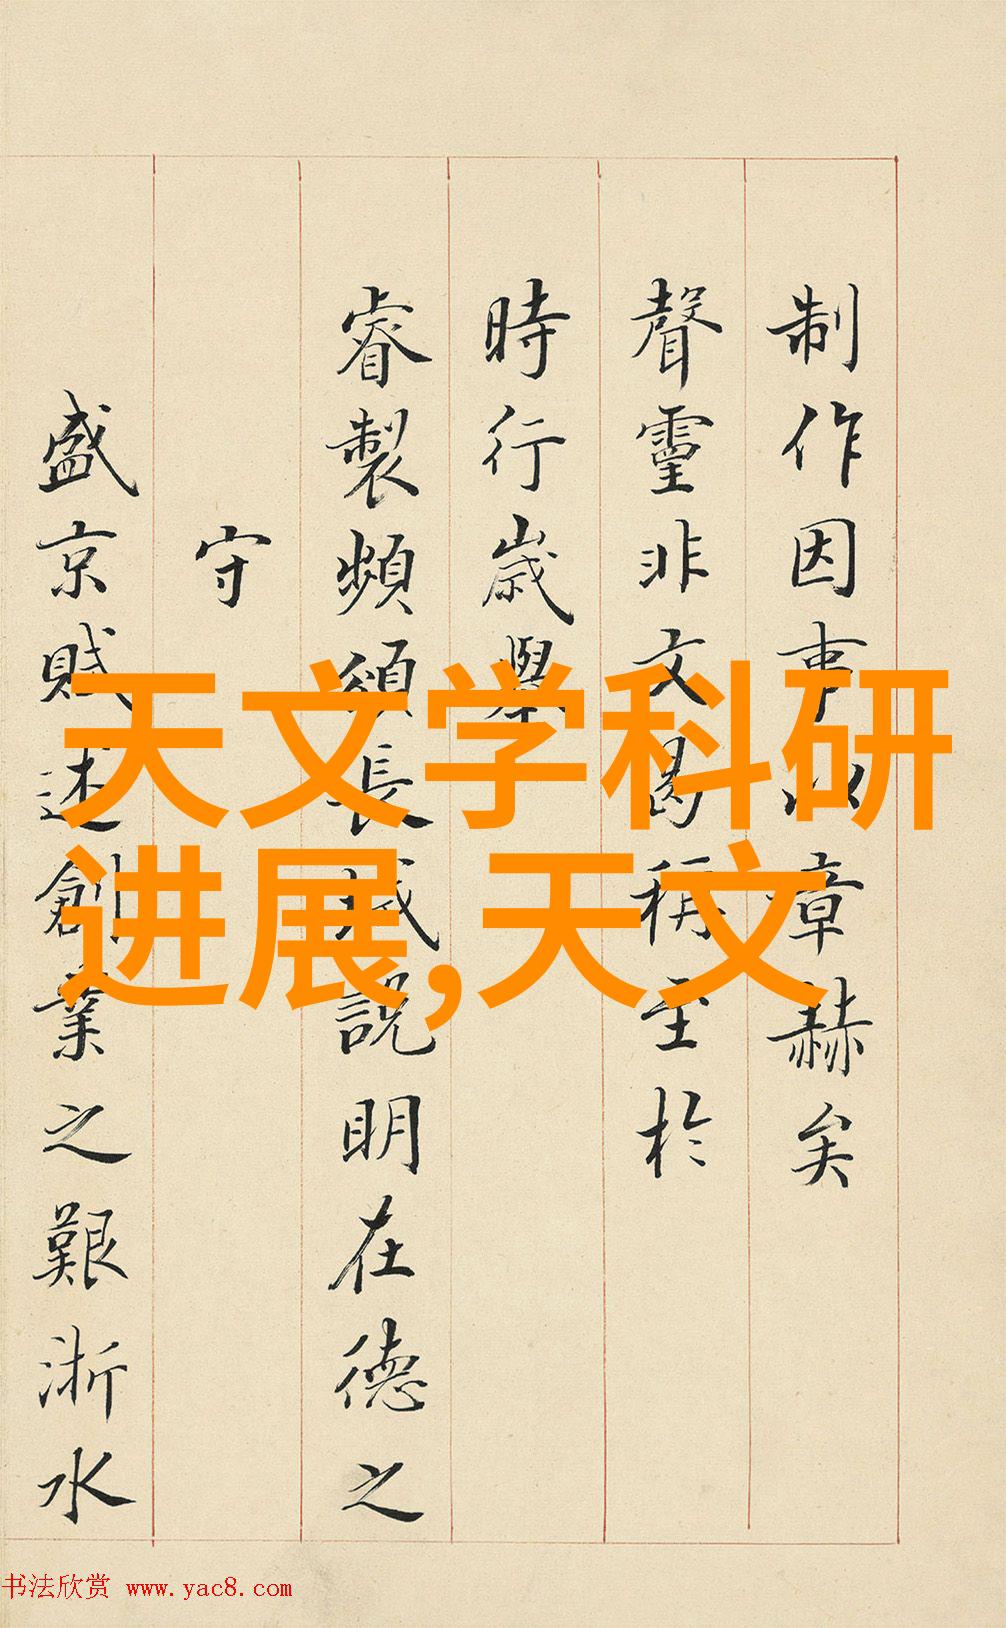 制作因事以章赫矣
聲靈非文曷稱至於
時行歲舉
睿製頻頒長城說明在德之
守
盛京賦述創業之艱浙水
天文学科研
进展,天文
书法欣赏 www.yac8.com